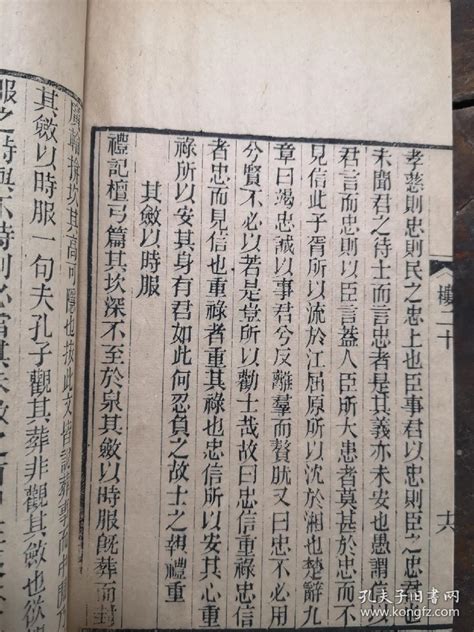 孝慈則忠則民之忠上也臣事君以忠則臣之忠君也
未聞君之待士而言忠者是其義亦未安也愚謂
君言而忠則以臣言蓋人臣所大患者莫甚於忠而
見信此子胥所以流於江屈原所以沈於湘也楚辭九
章曰竭忠誠以事君兮反離羣而贅肬又曰忠不必用
兮賢不必以若是豈所以勸士哉故曰忠信重祿忠信
者忠而見信也重祿者重其祿也忠信所以安其心重
祿所以安其身有君如此何忍負之故士之報禮重
其斂以時服
禮記檀弓篇其坎深不至於泉其斂以時服旣葬而封
廣輪揜坎其高可隱也按此文皆說葬事而中間
其斂以時服一句夫孔子觀其葬非觀其斂也欲
服之時與不時則必當其未斂之前
樓二十
六
孔夫子旧书网
www.kongfz.com